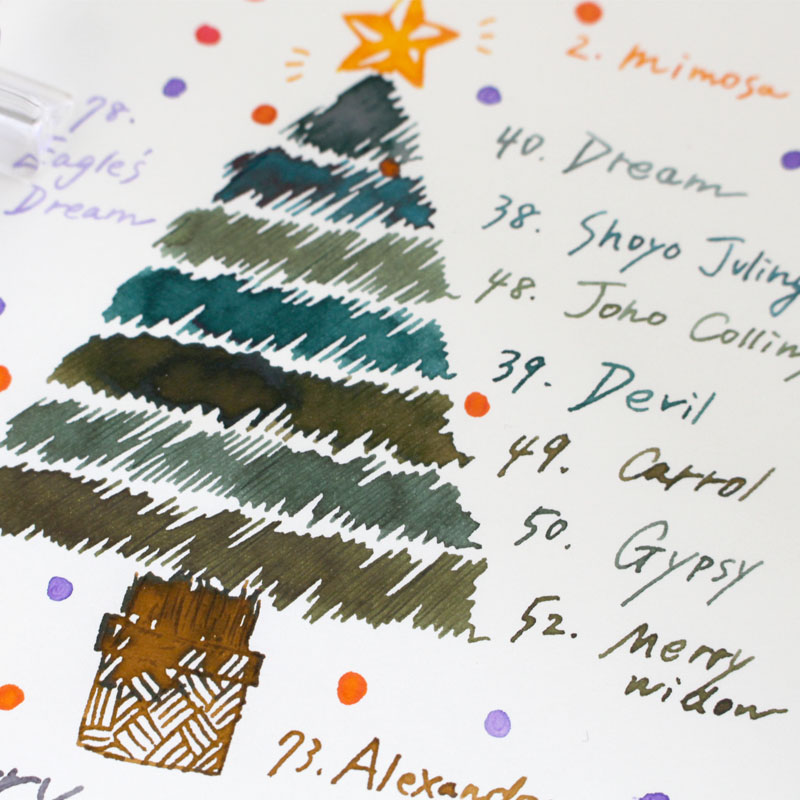 2. mimosa
78.
Eagle's
Dream
40. Dream
38. Shoyo Juling
48. Joho Collin
39. Devil
49. Carrol
50. Gypsy
52. Merry
widow
73. Alexand